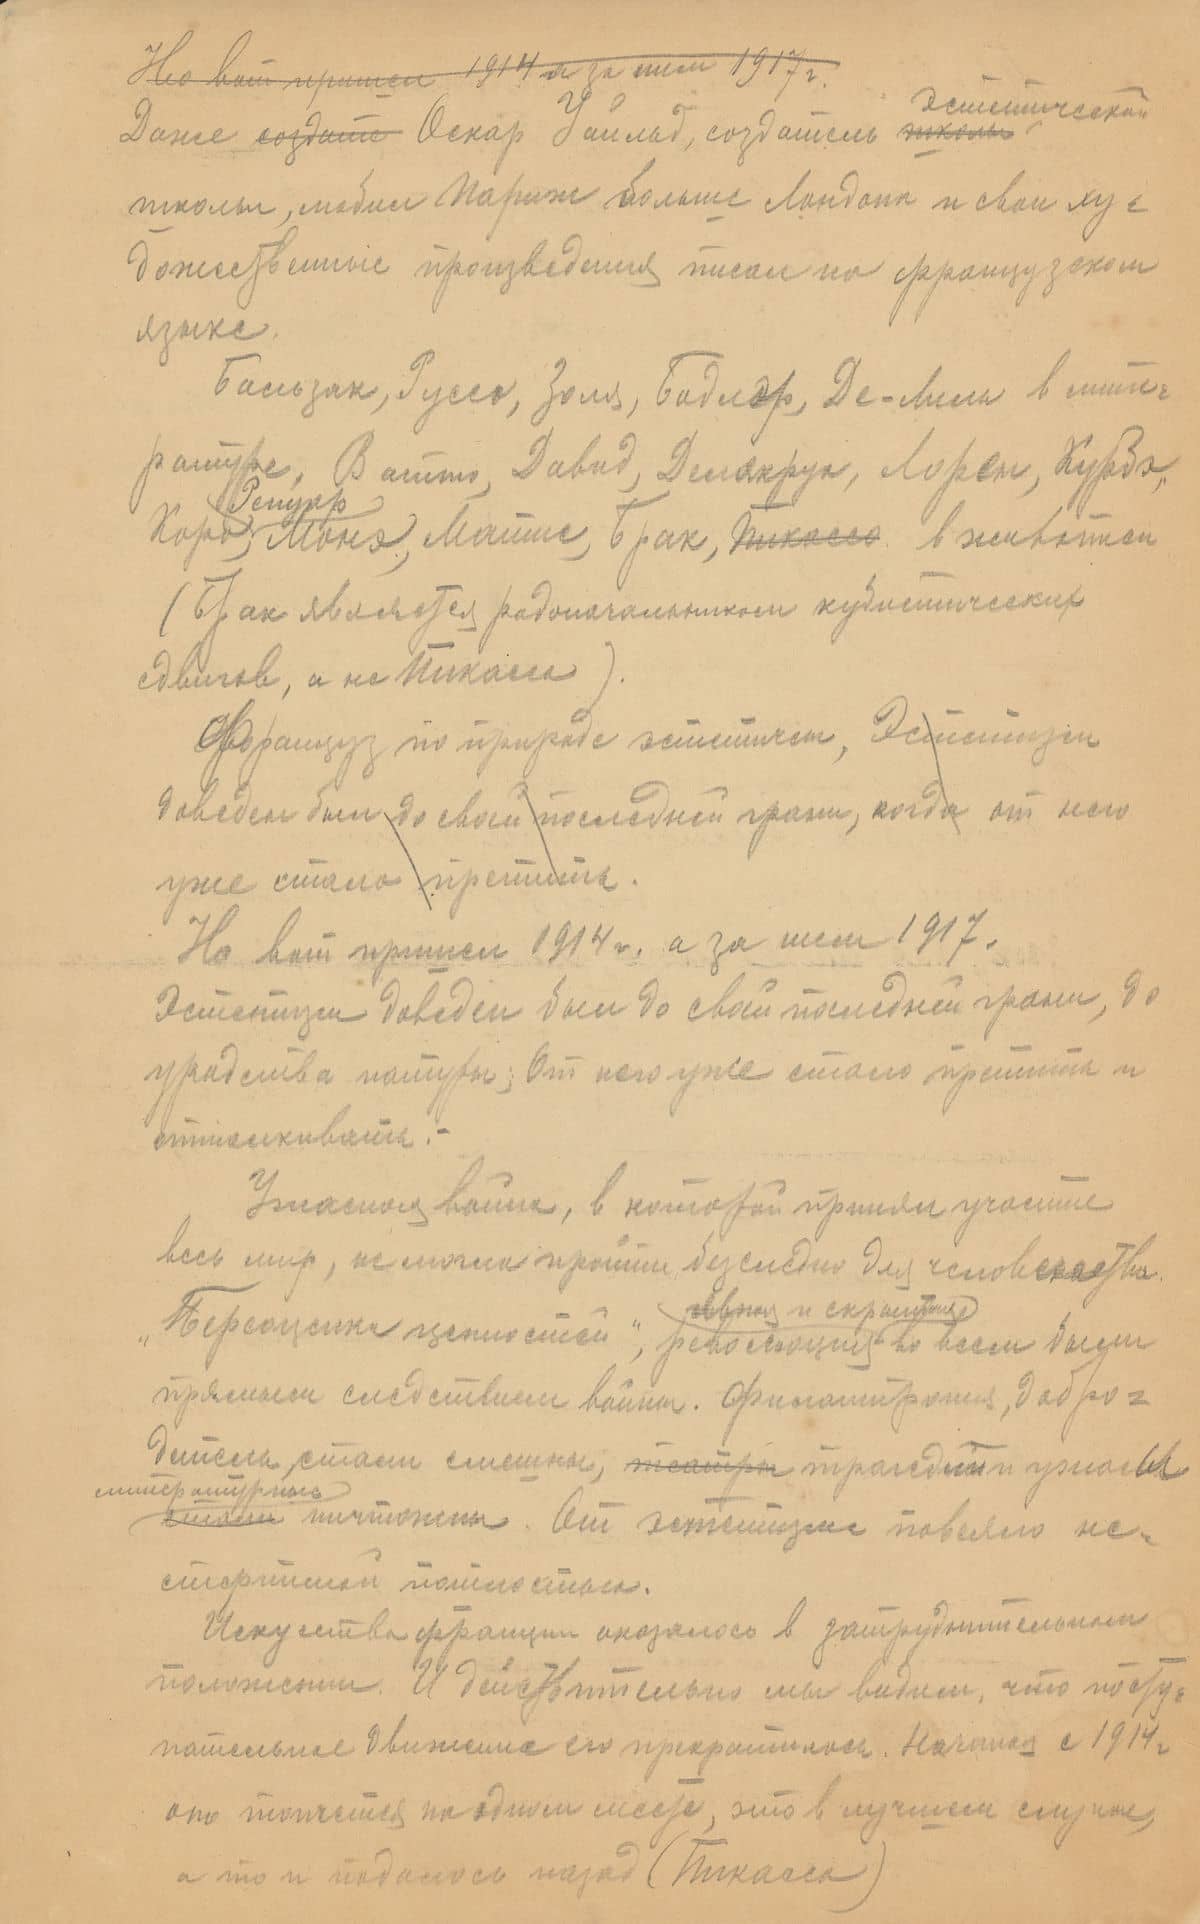 Но вот пришел 1914 а за ним 1917 г.
эстетической
Даже создате Оскар Уайльд, создатель школы
школы, любил Париж больше Лондона и свои ху=
дожественные произведения писал на французском
языке.
Бальзак, Руссо, Золя, Бодлэр, Де-Лиль в лите=
ратуре, Ватто, Давид, Делакруа, Лорен, Курбэ,
Ренуар
Коро, Монэ, Матис, Брак, Пикассо в живописи
(Брак является родоначальником кубистических
сдвигов, а не Пикассо).
Француз по природе эстетичен, Эстетизм
доведен был до своей последней грани, когда от него
уже стало претить.
Но вот пришел 1914 г. а за ним 1917.
Эстетизм доведен был до своей последней грани, до
уродства натуры; От него уже стало претить и
отталкивать.-
Ужасная война, в которой принял участие
весь мир, не могла пройти безследно для человечества.
явная и скрытная
„Переоценка ценностей", революция во всем были
прямым следствием войны. Филантропия, добро=
детель, стали смешны, театры трагедии и ужасы
литературные
стали ничтожны. От эстетизма повеяло не-
стерпимой пошлостью.
Искусство франции оказалось в затруднительном
положении. И действительно мы видим, что посту=
пательное движение его прекратилось. Начиная с 1914 г
оно топчется на одном месте, это в лучшем случае,
а то и подалось назад (Пикассо)